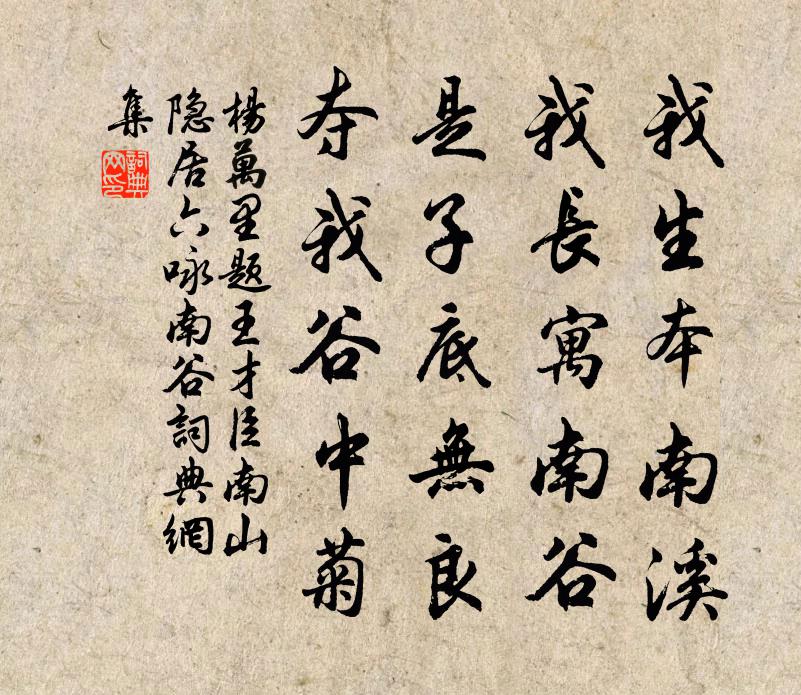 我生本南溪
我長寓南谷
是子底無良
夺我谷中菊
楊萬里题王才臣南山
隐居六咏南谷詞典網
集
詞典
网印